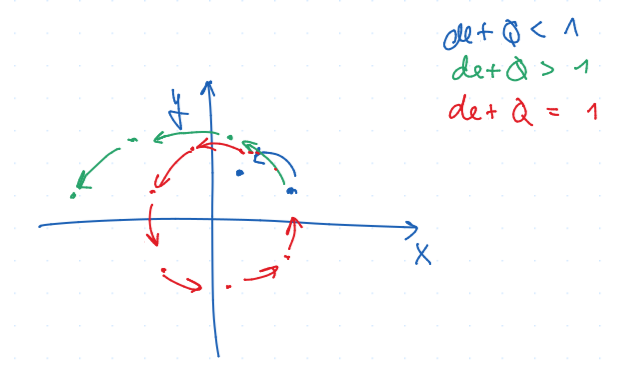 det Q < 1
det Q > 1
det Q = 1
y
x